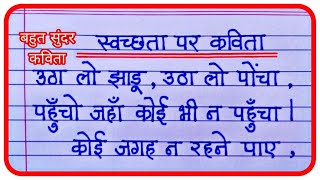 बहुत सुंदर
कविता
स्वच्छता पर कविता
उठा लो झाडू , उठा लो पोंचा ,
पहुँचो जहाँ कोई भी न पहुँचा ।
कोई जगह न रहने पाए ,